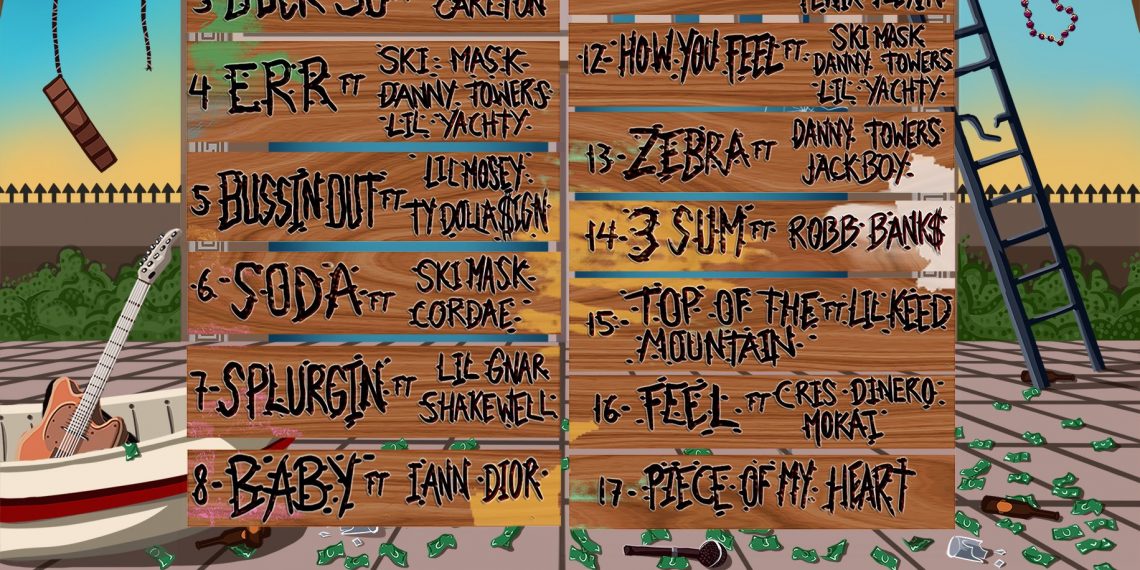 CARLTON
4 ERR FT SKI MASK
DANNY TOWERS
LIL YACHTY
5 BUSSIN OUT FT LIL MOSEY
TY DOLLA $IGN
6 - SODA FT SKI MASK
CORDAE
7 - SPLURGIN FT LIL GNAR
SHAKEWELL
8 - BABY FT IANN DIOR
12 - HOW YOU FEEL FT. SKI MASK
DANNY TOWERS
LIL YACHTY
13 - ZEBRA FT DANNY TOWERS
JACKBOY
14 - 3 SUM FT ROBB BANK$
15 - TOP OF THE FT LIL KEED
MOUNTAIN
16 - FEEL FT CRIS DINERO
MOKAI
17 - PIECE OF MY HEART